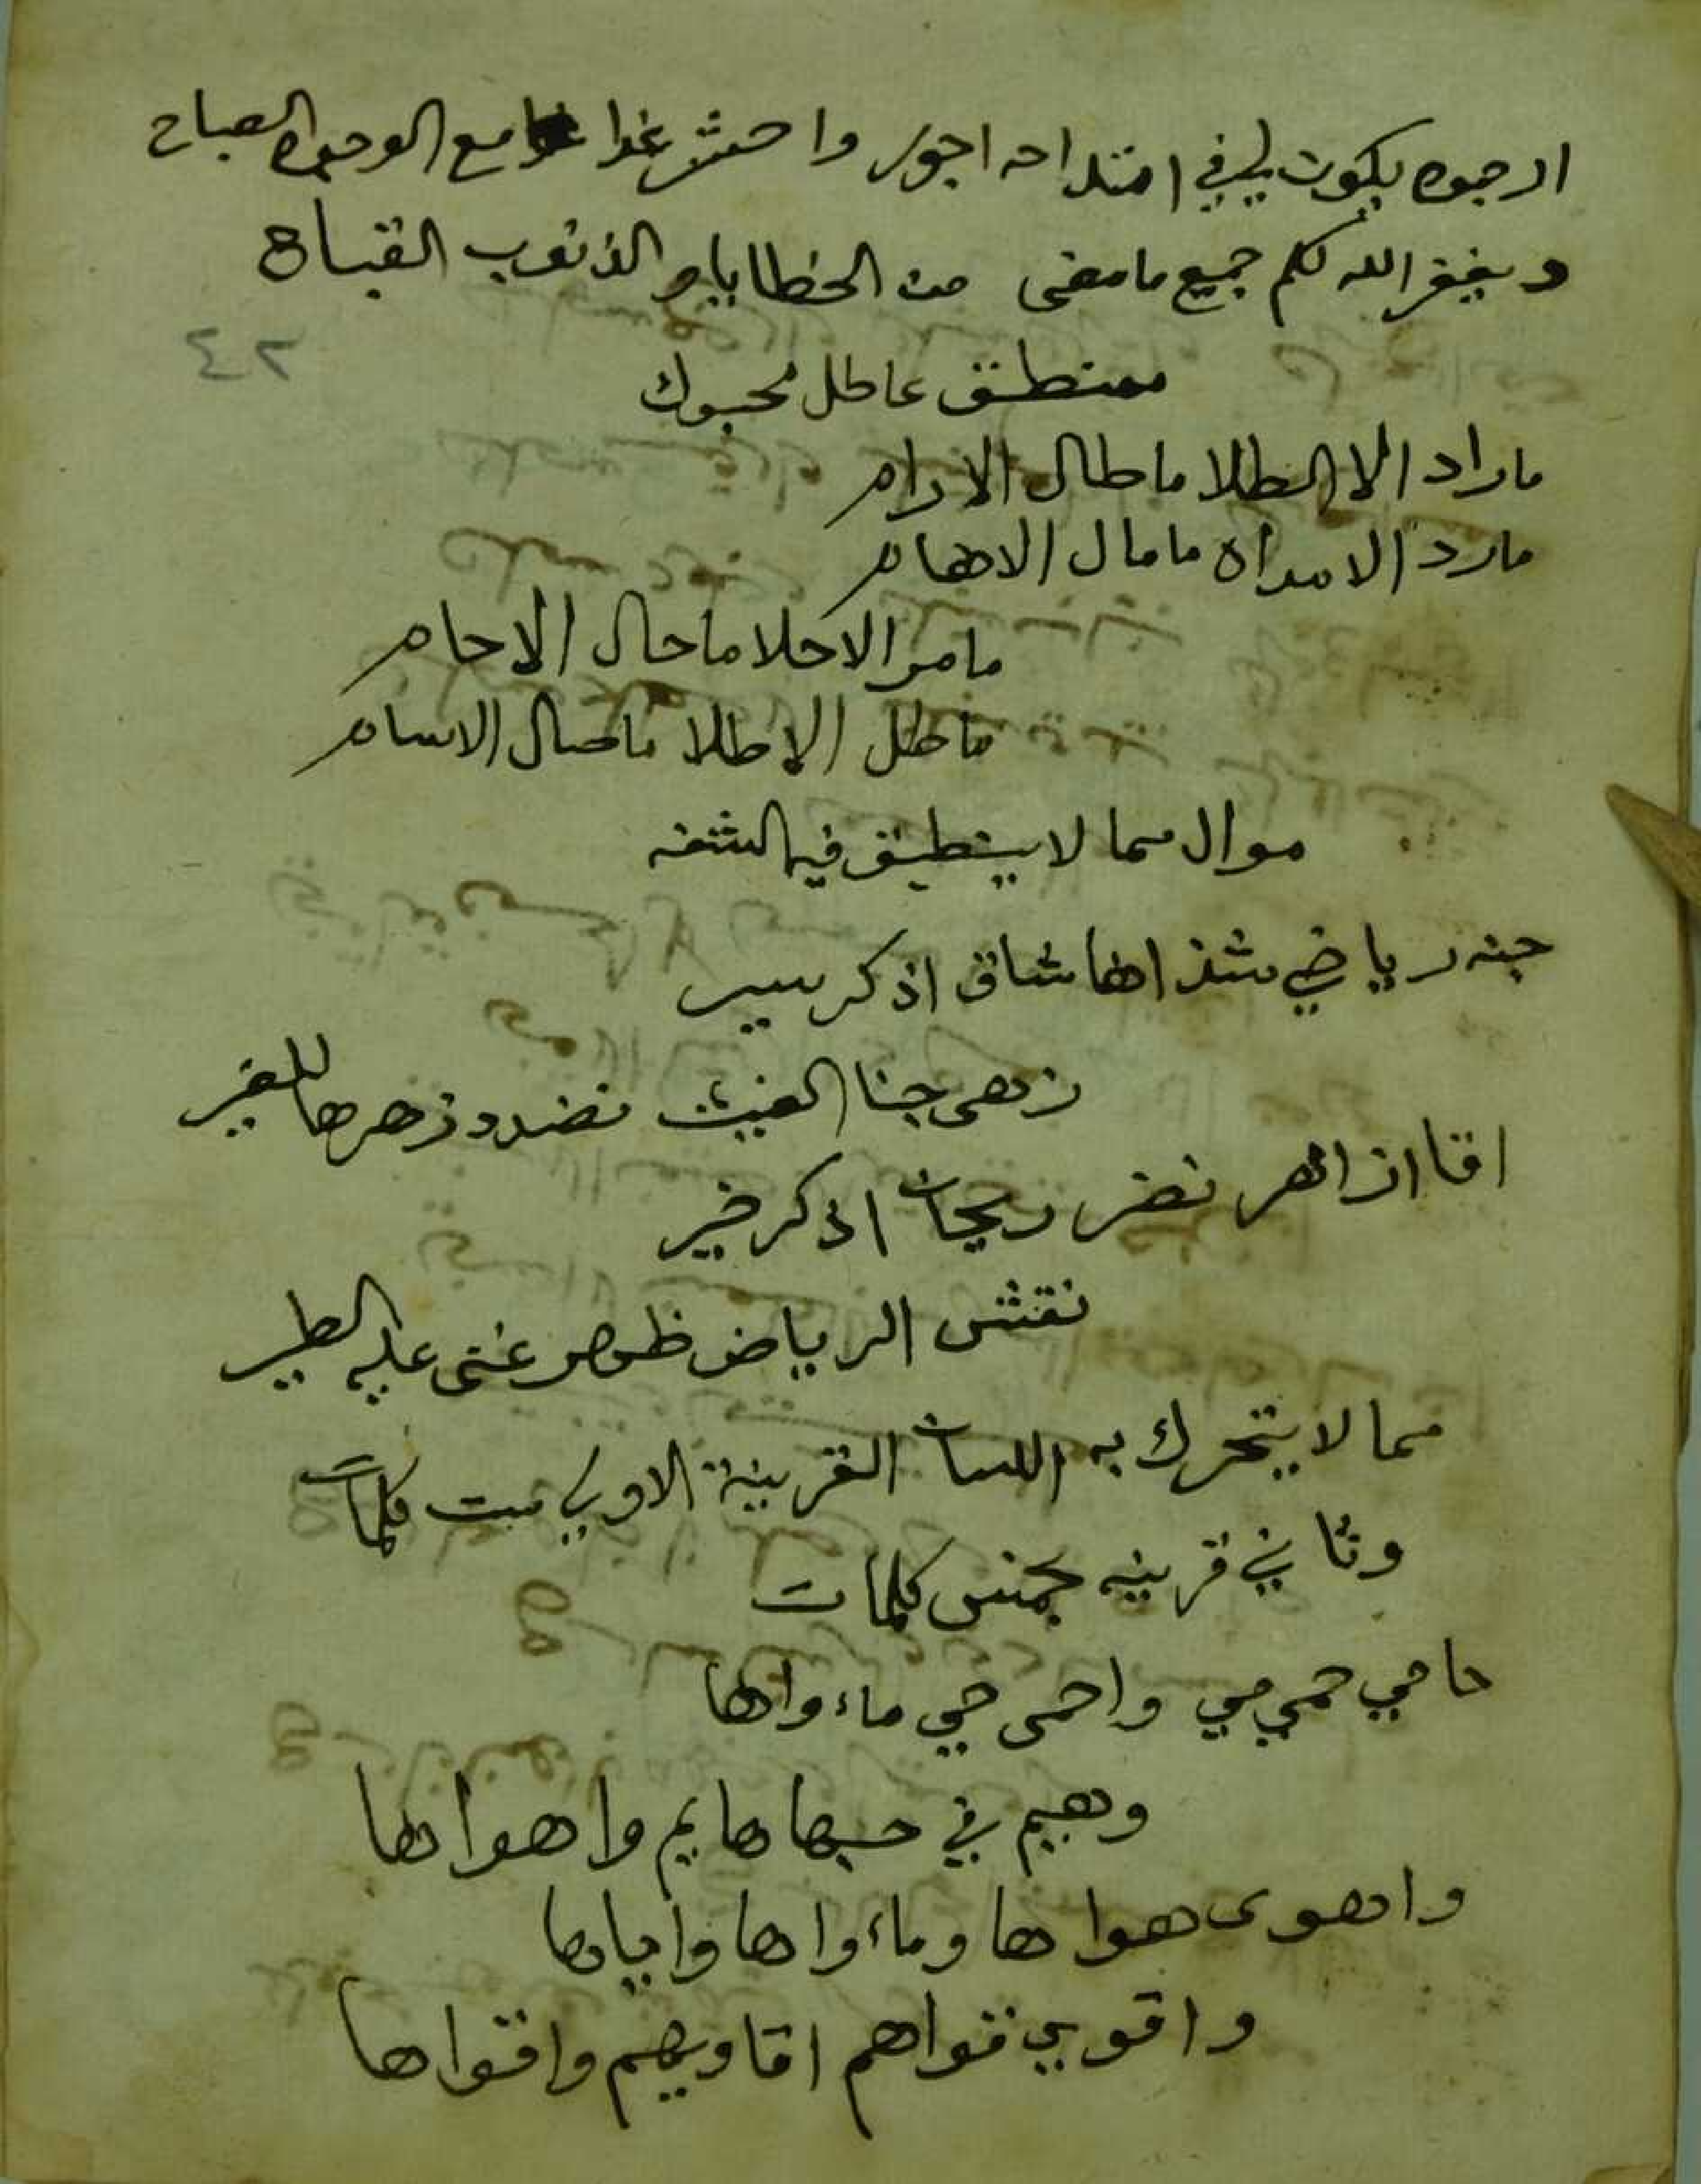 ارجوه يكون لي في امتداحه اجور واحشر غدا مع الوجوه الصباح
ويغفر الله لكم جميع ما مضى من الخطايا والذنوب القباح
٢٤
منطق عاطل محبوك
ماراد الا الطلا ما طال الا رام
مارد الا مراه ما مال الا هام
ما مر الا حلا ما حال الا حام
ما طل الا طلا ما صال الا سام
موال مما لا ينطبق فيه الشفه
جنه رياضي شذاها شاق اذكر سير
زهى جنا الغيث نضدد زهرها للغير
اقا ازاهر نضر ريحان اذكر خير
نقش الرياض ظهر غنى عليه الطير
مما لا يتحرك به اللسان القرينة الاولي ست كلمات
وثاني قرينه بخمس كلمات
حامي حمي مي واحمى حي ماء واها
وهيم في حبها هايم واهواها
واهوى هواها وماء واها واياها
واقوي قواهم اقاويهم واقواها